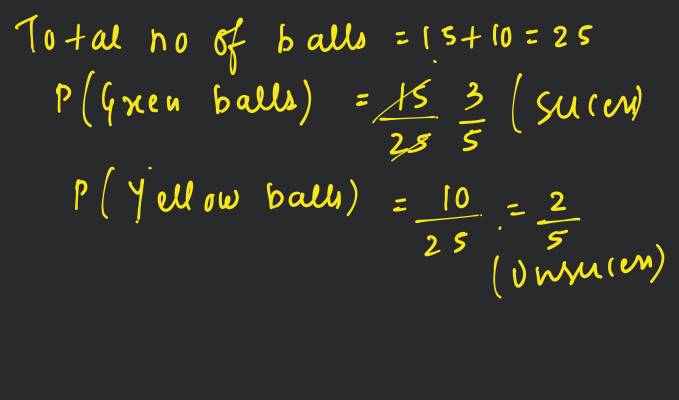 Total no of balls = 15+10 = 25
P(Green balls) = 15/25 3/5 (sucess)
P(Yellow balls) = 10/25 = 2/5
(Unsucess)